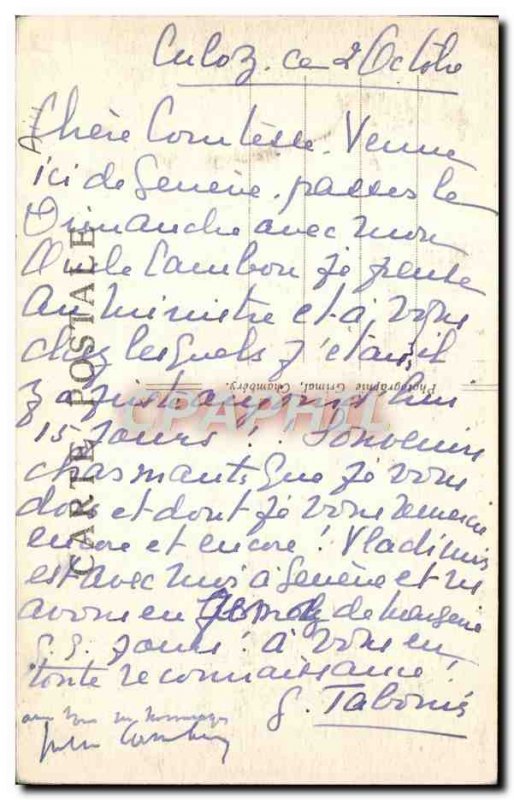 Culoz. ce 2 Octobre
Chère Comtesse. Venue
ici de Genève. passer le
Dimanche avec mon
Oncle Cambon je pense
au ministre et à vous
chez lesquels j'étais il
y a juste aujourd'hui
15 jours! Souvenirs
charmants que je vous
dois et dont je vous remercie
encore et encore! Vladimir
est avec moi à Genève et ns
avons eu de Margerie
jours! à vous en
toute reconnaissance!
G. Tabouis
avec tous mes hommages
Jules Cambon
CARTE POSTALE
Photographie Grimal, Chambéry.
CPAPHIL